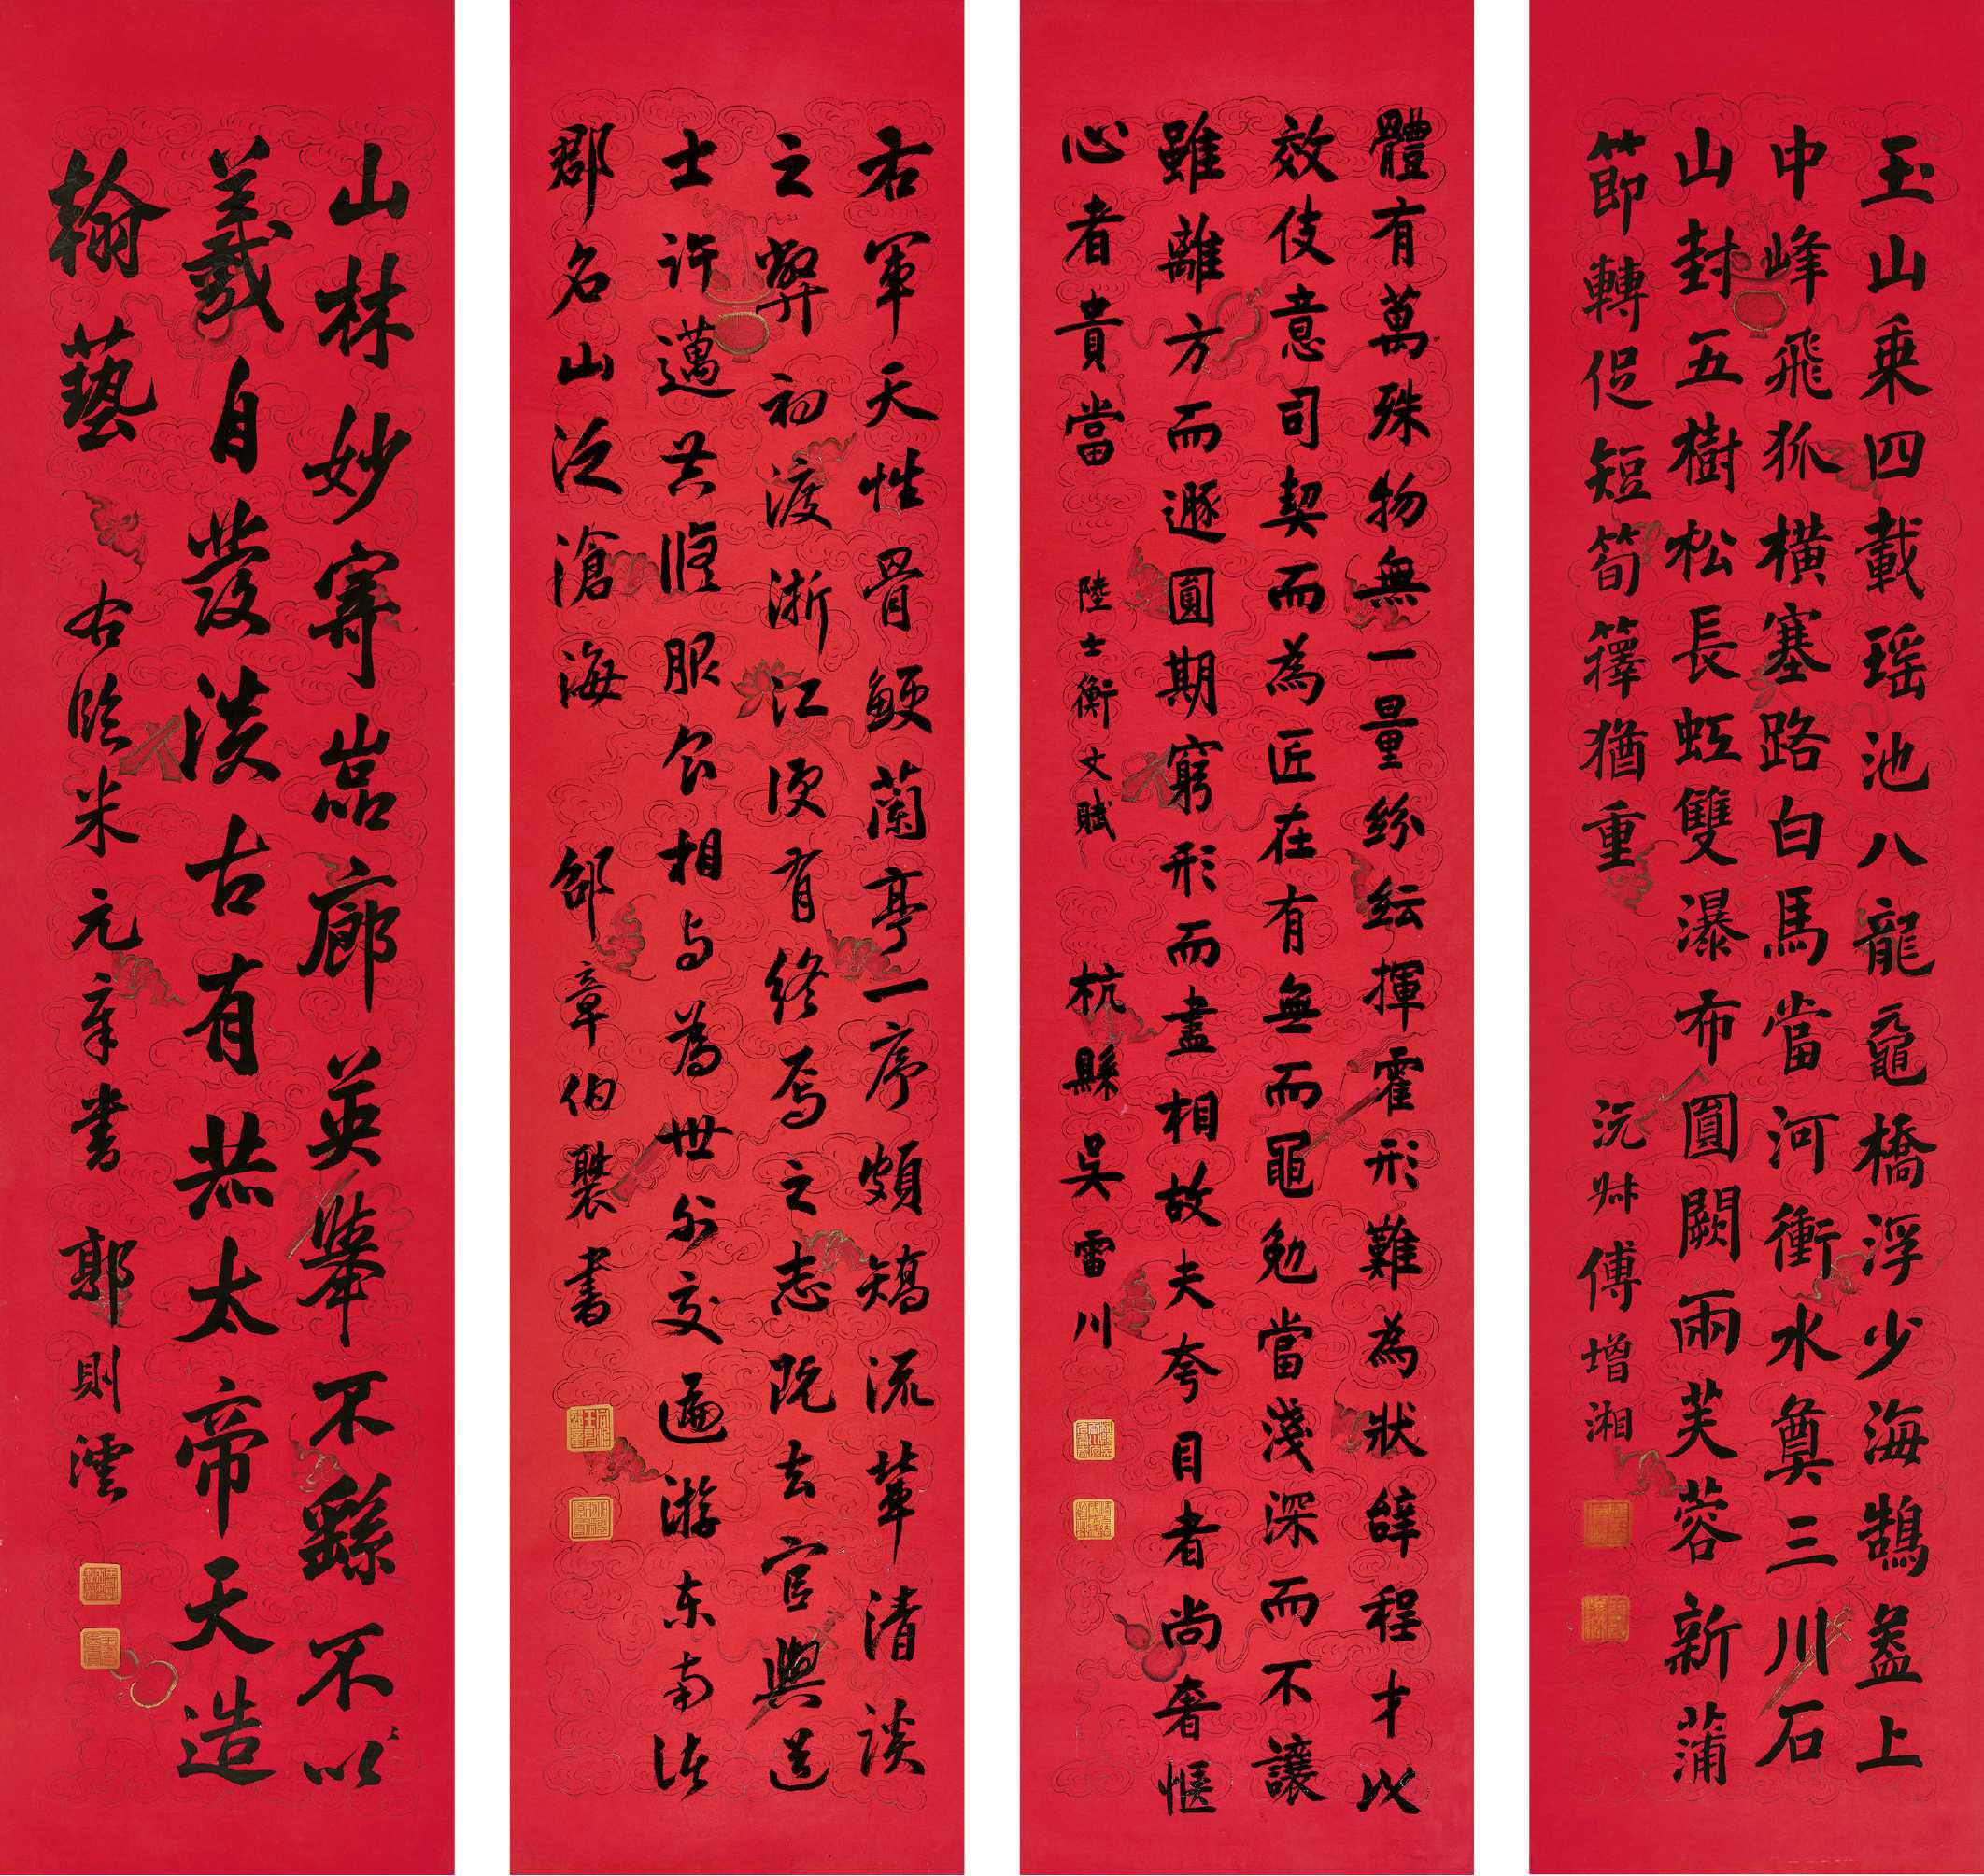 玉山乗四載瑶池八龍黿橋浮少海鵠蓋上
中峰飛狐橫塞路白馬當河衝水奠三川石
山封五樹松長虹雙瀑布圓闕兩芙蓉新蒲
節轉促短筍籜猶重
沅尗傅增湘
體有萬殊物無一量紛紜揮霍形難為狀辭程才以
效伎意司契而為匠在有無而黽勉當淺深而不讓
雖離方而遯圓期窮形而盡相故夫夸目者尚奢愜
心者貴當 陸士衡文賦 杭縣吳雷川
右軍天性骨鯁蘭亭一序頗矯流輩清談
之弊初渡浙江便有終焉之志既去官與道
士許邁共脩服食相與為世外交遍游東南諸
郡名山泛滄海 邵章伯褧書
山林妙寄嵓廊英舉不繇不以
羲自發淡古有恭太帝天造
翰藝 右臨米元章書 郭則澐